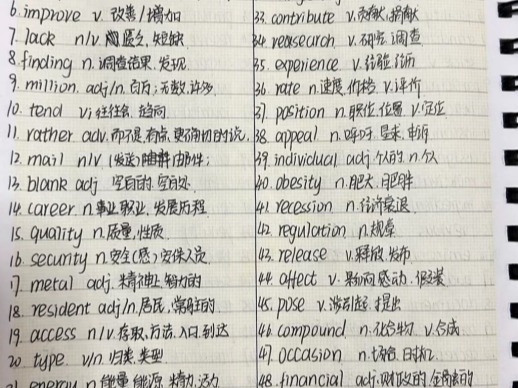 6. improve v. 改善/增加
7. lack n/v 匮乏, 短缺
8. finding n. 调查结果, 发现
9. million adj/n. 百万; 无数, 许多
10. tend vi 往往会, 趋向
11. rather adv. 而不是, 有点, 更确切的说,
12. mail n/v (发送) 邮件;
13. blank adj 空白的, 空白处
14. career n. 事业, 职业, 发展历程
15. quality n. 质量, 性质
16. security n. 安全(感), 安保人员
17. metal adj. 精神上, 智力的
18. resident adj/n. 居民, 常驻的
19. access n/v. 存取, 方法, 入口, 到达
20 type v/n. 归类, 类型
21 energy n. 能量, 能源, 精力, 活力
33. contribute v. 贡献, 捐献
34. reasearch v. 研究, 调查
35. experience v. 经验, 经历
36. rate n. 速度, 价格 v. 评价
37. position n. 职位, 位置 v. 定位
38. appeal n. 呼吁, 上诉, 申诉
39. individual adj 个人的 n. 个人
40. obesity n. 肥大, 肥胖
41. recession n. 经济衰退
42. regulation n. 规章
43. release v. 释放, 发布
44. affect v. 影响, 感动, 假装
45. pose v. 引起, 提出
46. compound n. 化合物 v. 合成
47. occasion n. 场合, 时机
48. financial adj. 财政的, 金融的